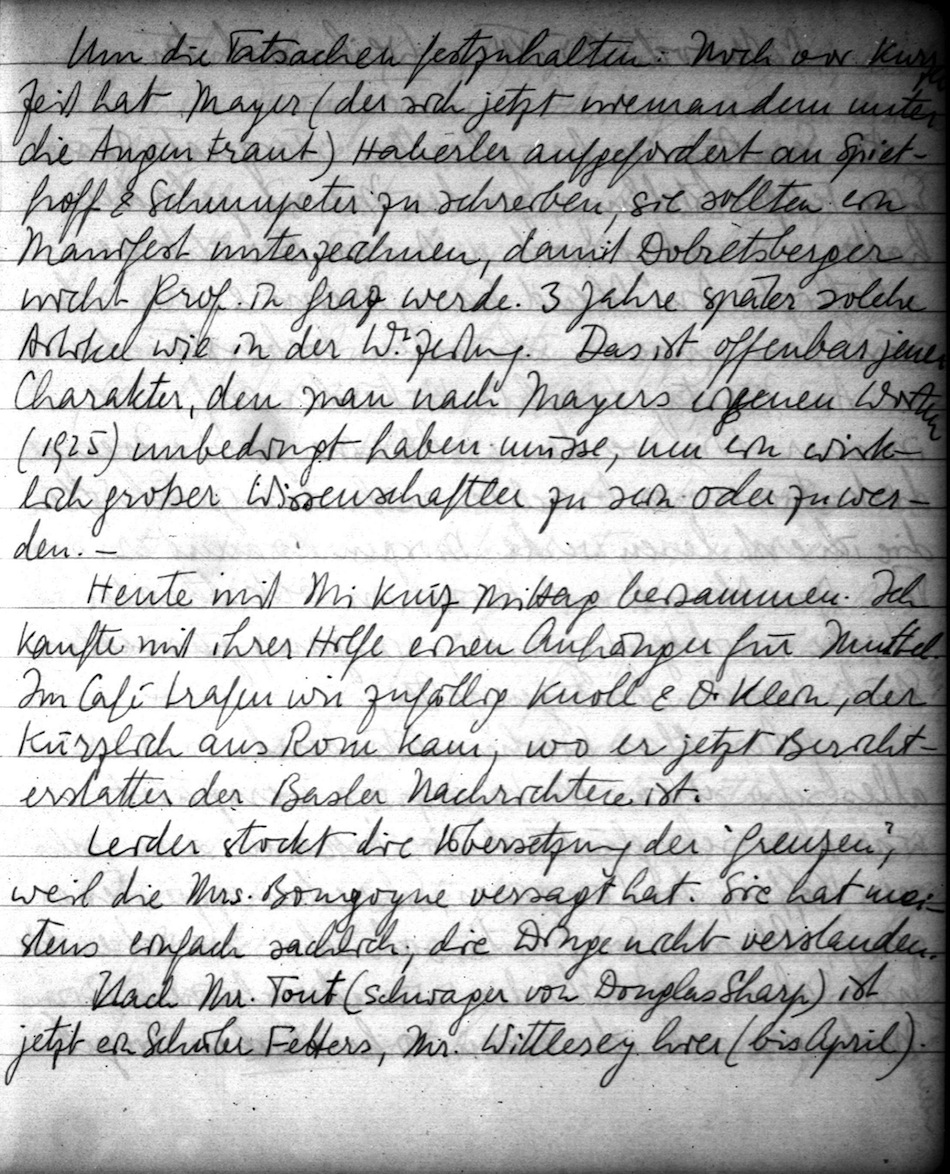 Um die Tatsachen festzuhalten: Noch vor kurzer
Zeit hat Mayer (der sich jetzt niemandem unter
die Augen traut) Haberler aufgefordert an Spiet-
hoff & Schumpeter zu schreiben, sie sollten ein
Manifest unterzeichnen, damit Dobretsberger
nicht Prof. in Graz werde. 3 Jahre später solche
Artikel wie in der Wr. Zeitung. Das ist offenbar jener
Charakter, den man nach Mayers eigenen Worten
(1925) unbedingt haben müsse, um ein wirk-
lich großer Wissenschaftler zu sein oder zu wer-
den. –
Heute mit Mi kurz Mittag beisammen. Ich
kaufte mit ihrer Hilfe einen Anhänger für
Im Café trafen wir zufällig Knoll & Dr Klein, der
kürzlich aus Rom kam, wo er jetzt Bericht-
erstatter der Basler Nachrichten ist.
Leider stockt die Übersetzung der "Grenzen",
weil die Mrs. Bourgoyne versagt hat. Sie hat mei-
stens einfach sachlich, die Dinge nicht verstanden.
Nach Mr. Tout (Schwager von Douglas Sharp) ist
jetzt ein Schüler Fetters, Mr. Wittlesey hier (bis April).